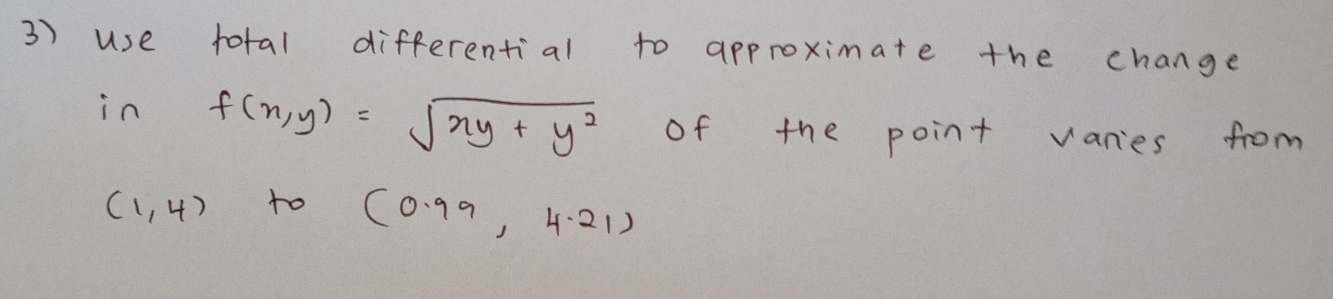 3) use total differential to approximate the change
in f(x,y) = √xy + y² of the point varies from
(1,4) to (0.99, 4.21)